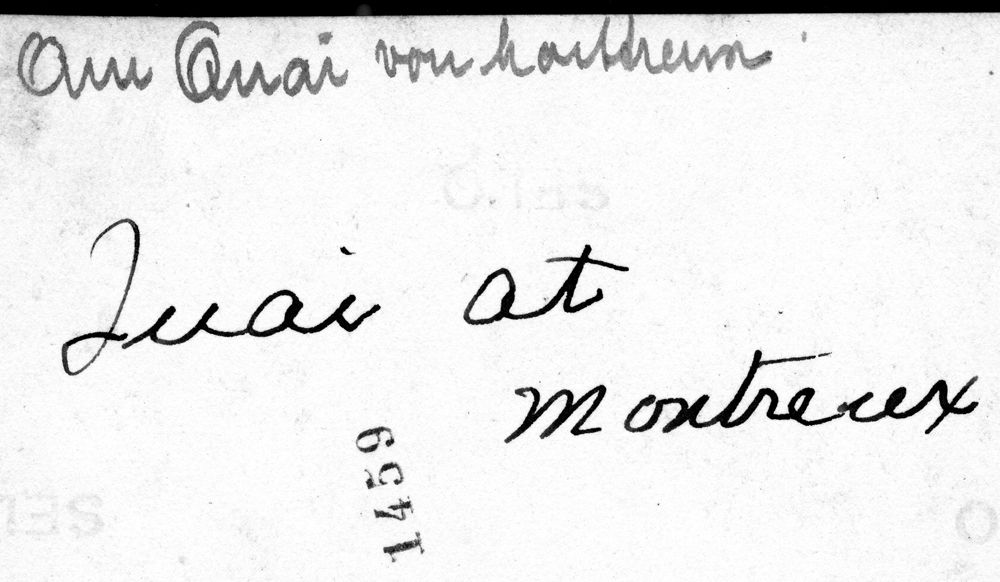 Am Quai von Montreux
Quai at
Montreux
1459